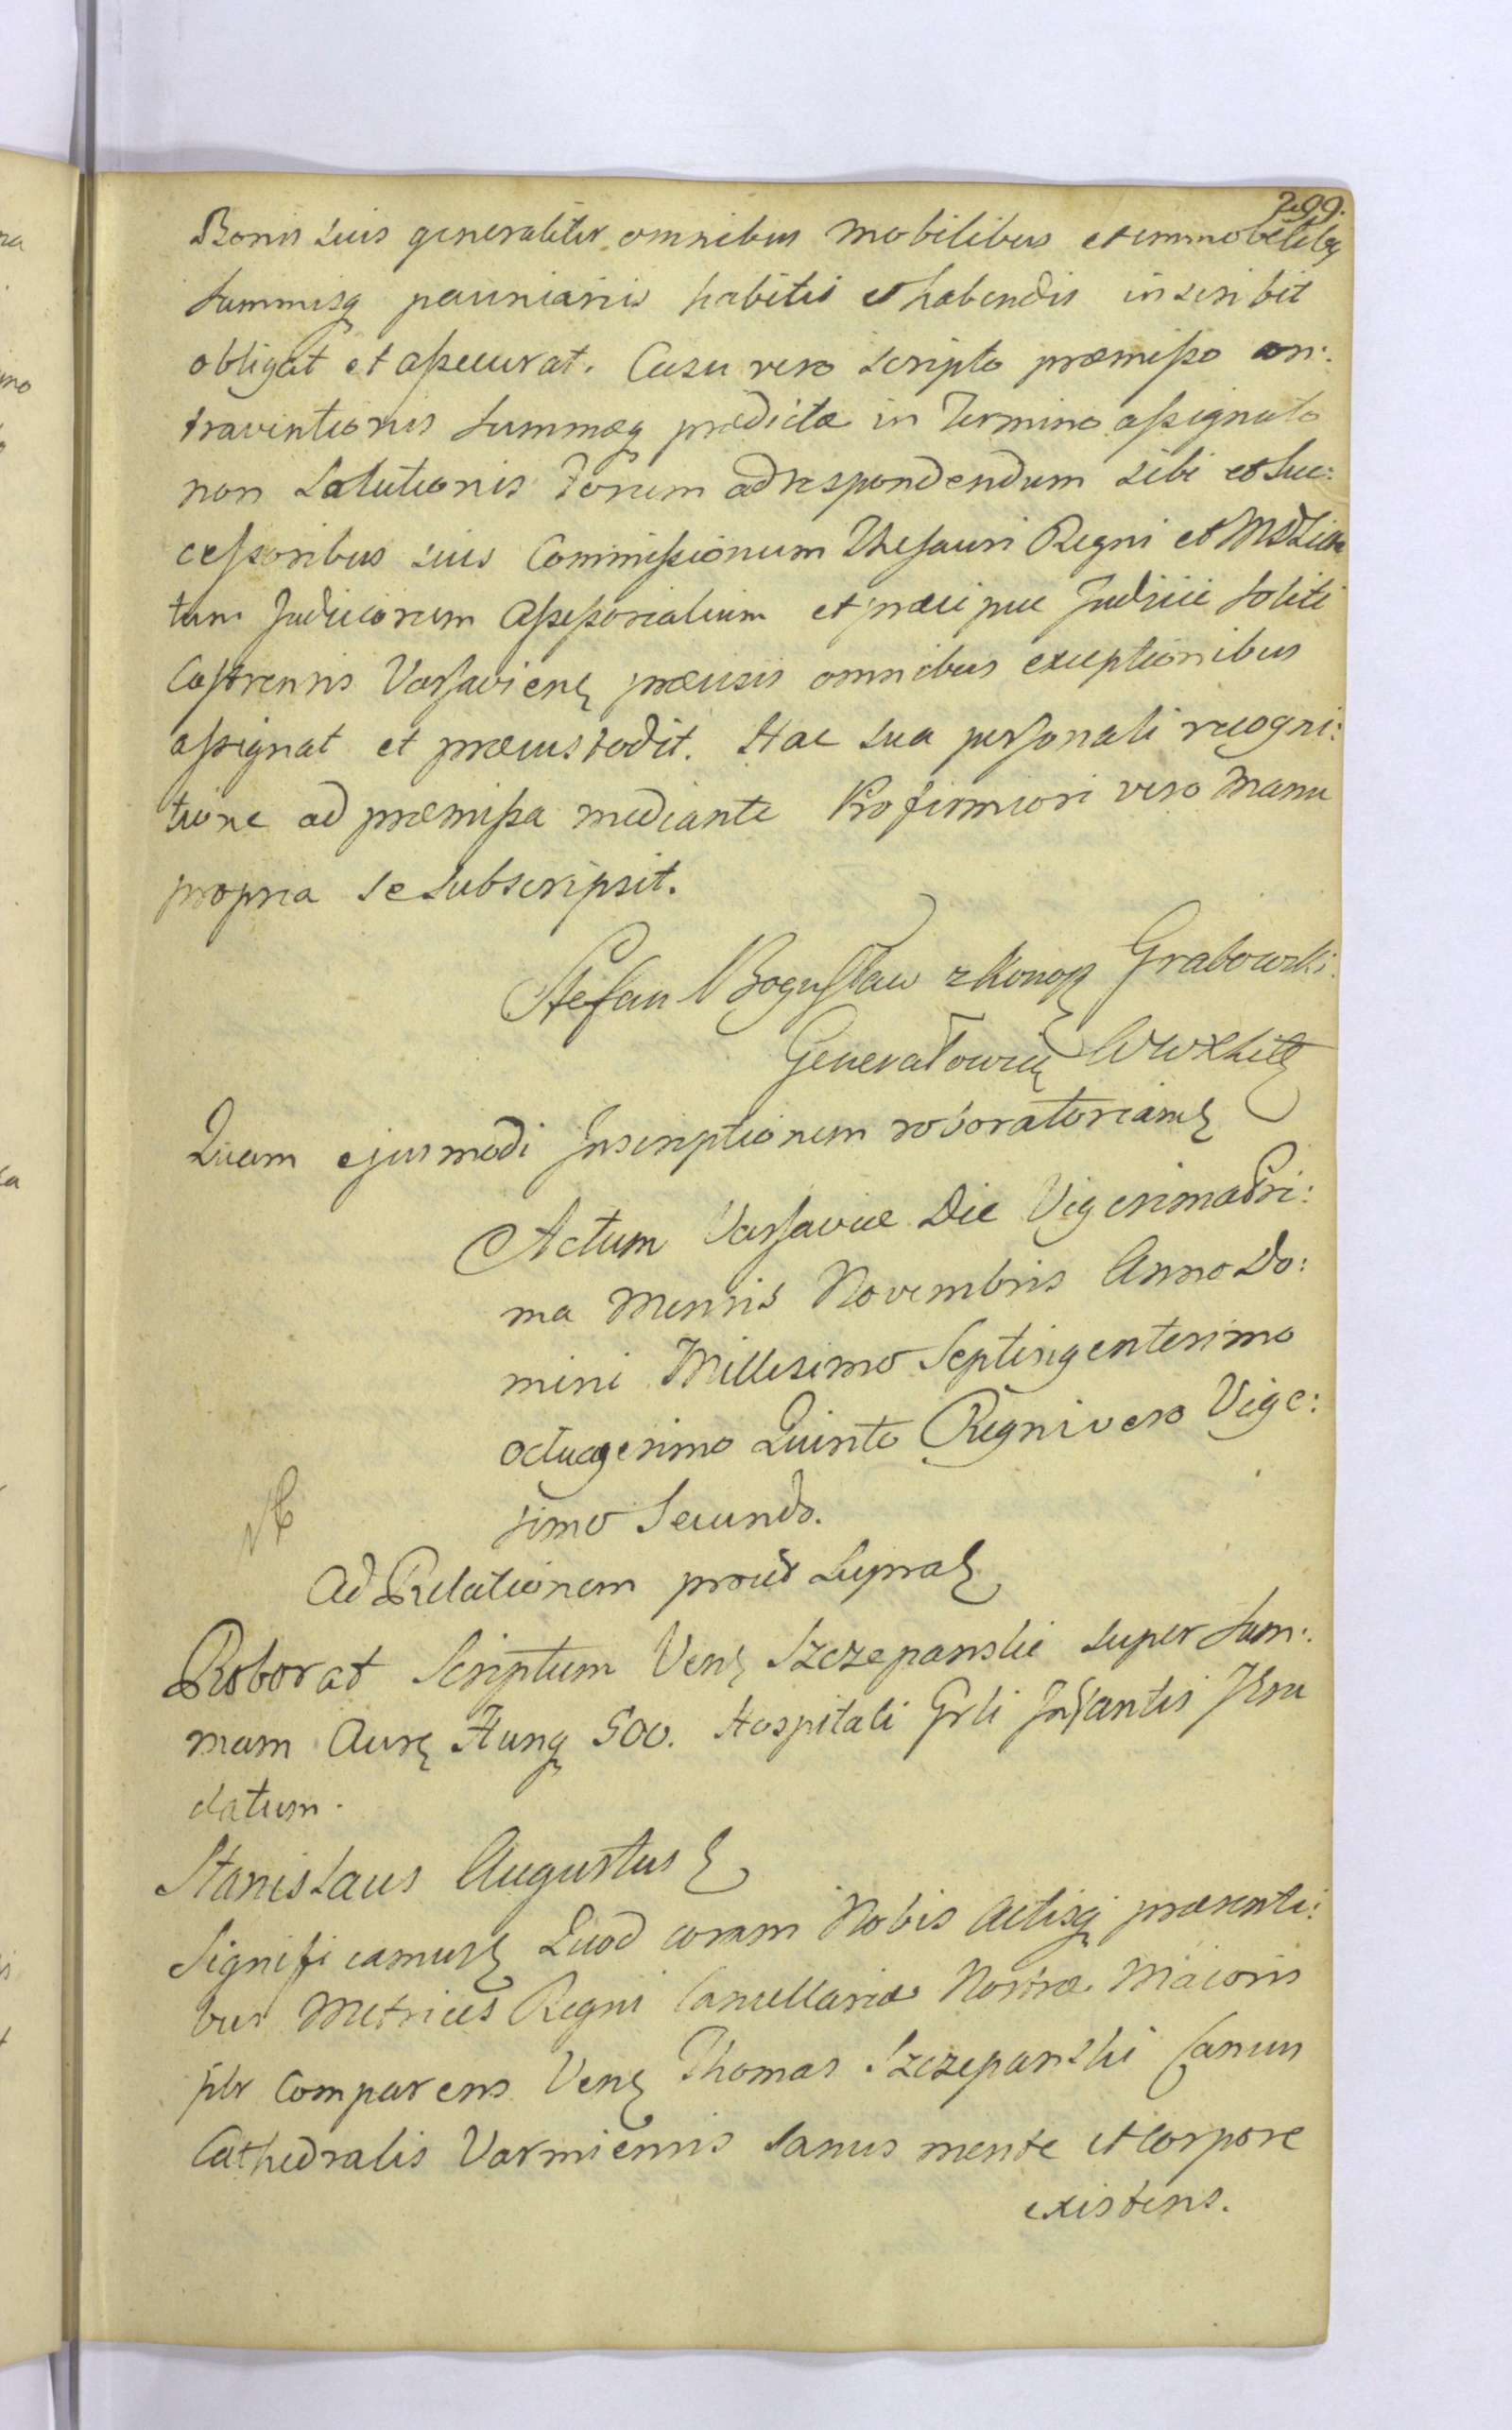 299.
Bonis suis generaliter omnibus Mobilibus et immobilibq
Summisq pecuniariis habitis et habendis inscribit
obligat et assecurat. Casu vero scripto præmisso con:
traventionis Summæq prædictæ in Termino assignato
non Solutionis Forum ad respondendum sibi et Suc:
cessoribus suis Commissionum Thesauri Regni et MD Litt
tum Judiciorum Assessorialium et præcipue Judicii soliti
Castrensis Varsavien præcisis omnibus exceptionibus
assignat et præcustodit. Hac sua personali recogni:
tione ad præmissa mediante Pro firmiori vero Manu
propria se subscripsit.
Stefan Bogusław z Konop Grabowski
Generałowicz WWXLitt
Quam ejusmodi Inscriptionem roboratoriam
Actum Varsaviæ Die Vigesima Pri:
ma Mensis Novembris Anno Do:
mini Millesimo Septingentesimo
octuagesimo Quinto Regni vero Vige:
simo Secundo.
Ad Relationem prout Supra
Roborat Scriptum Ven Szczepanski super Sum:
mam Aur Hung 500. Hospitali Grli Infantis Jesu
datum.
Stanislaus Augustus
Significamus Quod coram Nobis Actisq præsenti:
bus Metrices Regni Cancellariæ Nostræ Maioris
pltr Comparens Ven Thomas Szczepanski Canon
Cathedralis Varmiensis sanus mente et Corpore
existens.